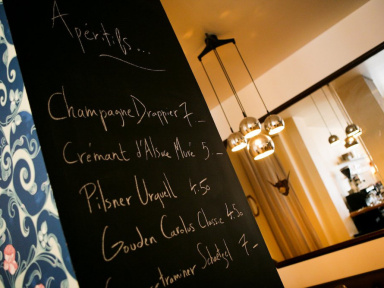 Apéritifs...
Champagne Drappier 7_
Crémant d'Alsace Muré 5_
Pilsner Urquell 4.50
Gouden Carolus Classic 4.50
Schoetzel 7_